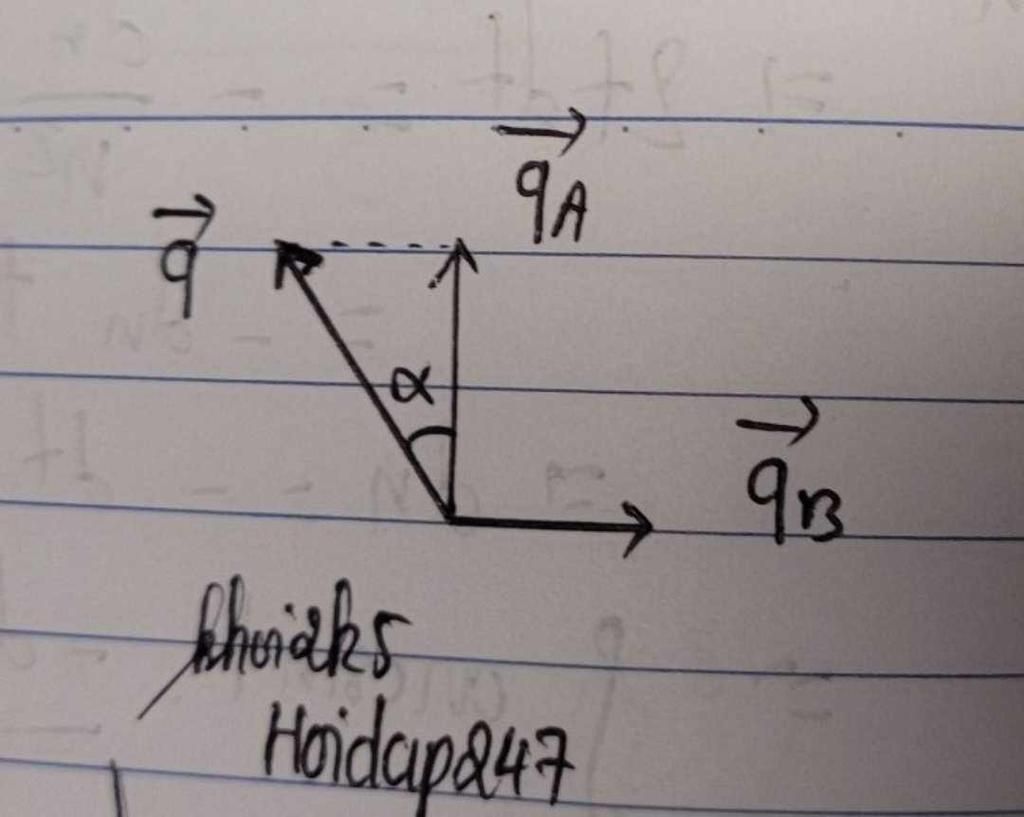 →
qA
→
q
α
→
qB
khoi2k5
Hoidap247